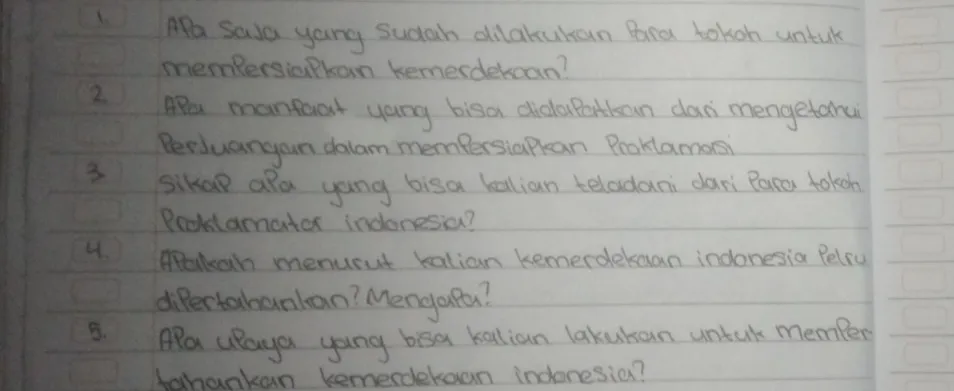 1. Apa Saja yang Sudah dilakukan Para tokoh untuk
memPersiaPkan kemerdekaan?
2 APa manfaat yang bisa didaPatkan dari mengetahui
Perjuangan dalam memPersiaPkan Proklamasi
3 Sikap aPa yang bisa kalian teladani dari Para tokoh
Proklamator indonesia?
4. APakah menurut kalian kemerdekaan indonesia Pelru
diPertahankan? MengaPa?
5. APa uPaya yang bisa kalian lakukan untuk memPer
tahankan kemerdekaan indonesia?